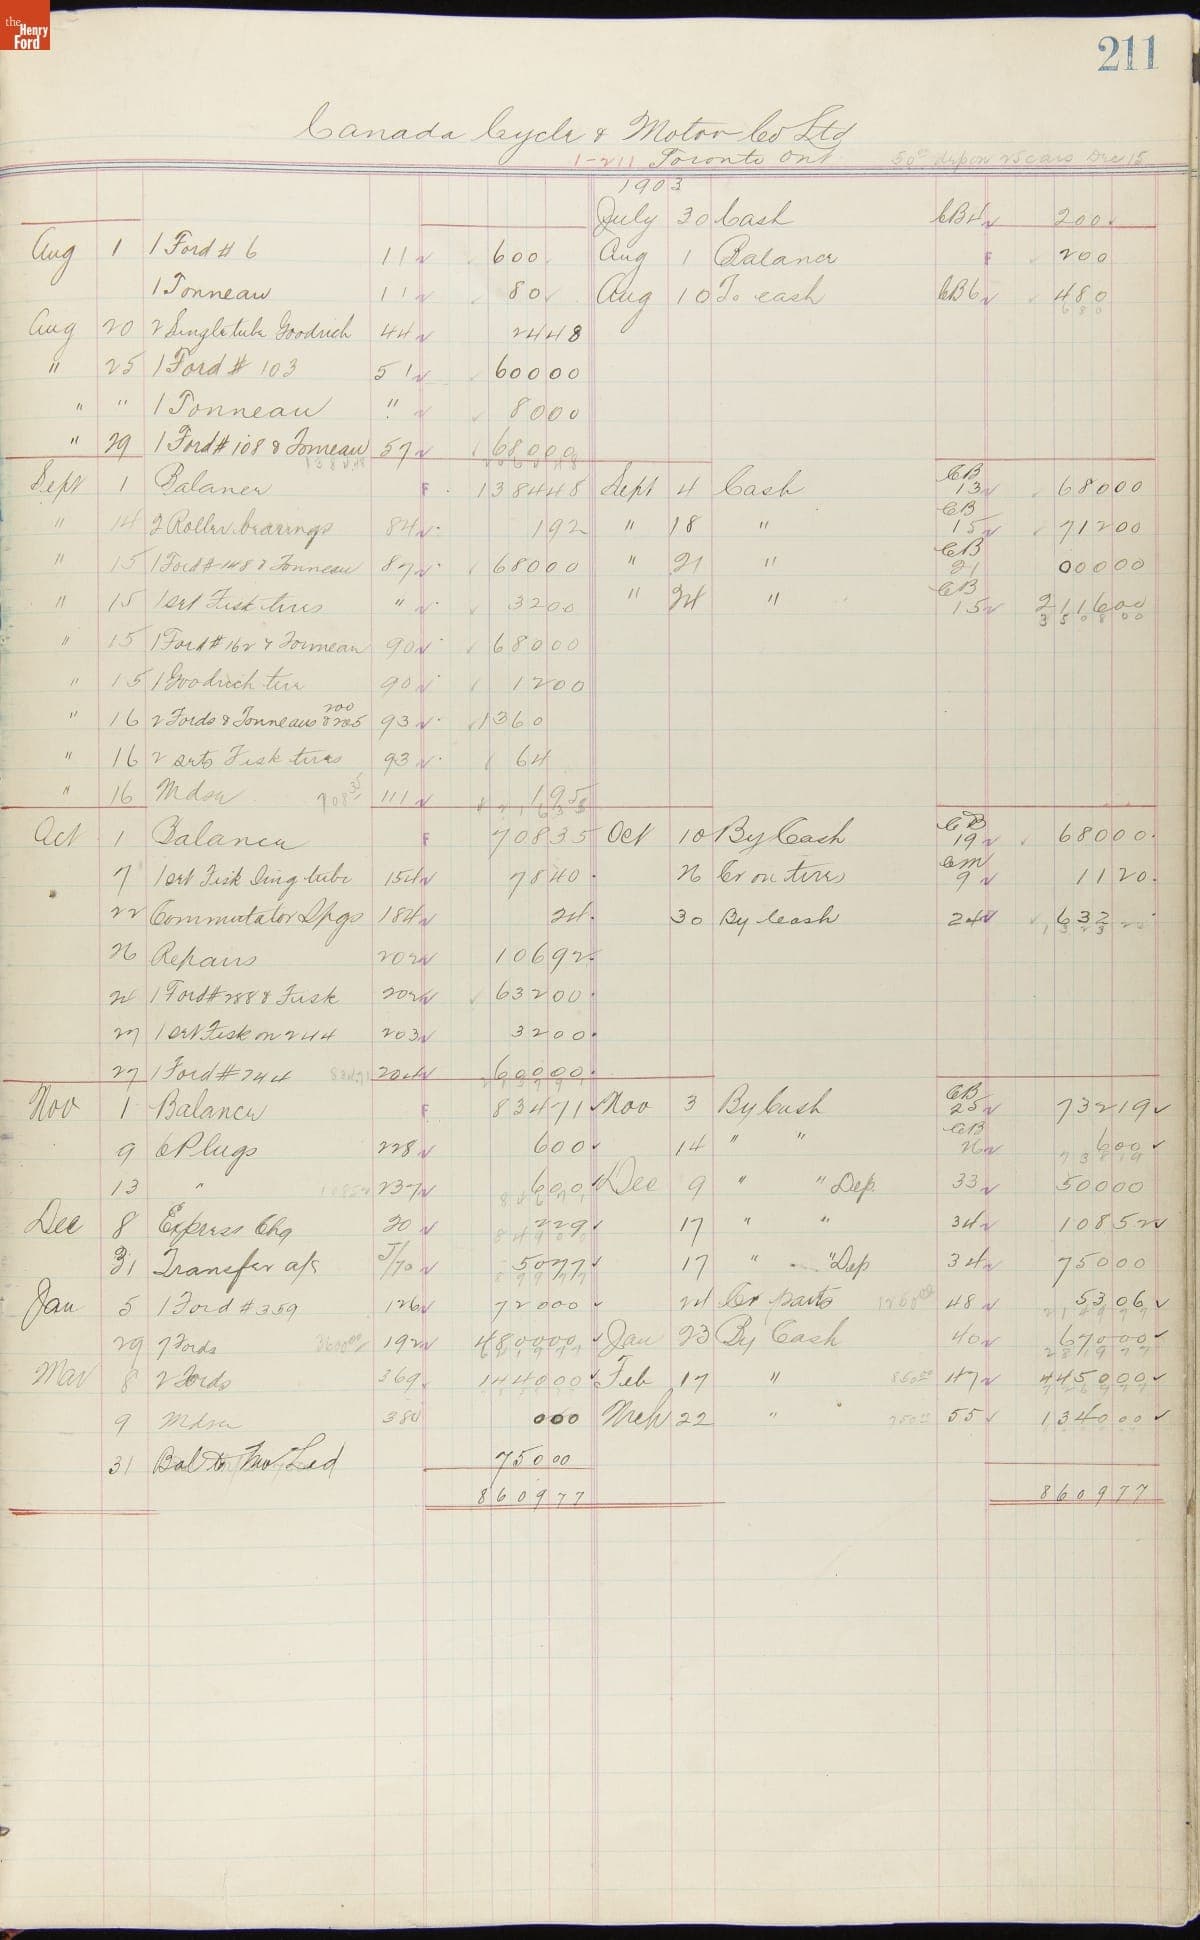 the Henry Ford
211
Canada Cycle & Motor Co Ltd
1-211 Toronto Ont 50 00 dep on 25 cars Dec 15
1903
July 30 Cash CB4 200
Aug 1 1 Ford # 6 11 600 Aug 1 Balance F 200
1 Tonneau 11 80 Aug 10 To cash CB6 480
680
Aug 20 2 Single tube Goodrich 44 2448
" 25 1 Ford # 103 51 60000
" " 1 Tonneau " 8000
" 29 1 Ford # 108 & Tonneau 57 68000
Sept 1 Balance F 138448 Sept 4 Cash CB 13 68000
" 14 2 Roller bearings 84 192 " 18 " CB 15 71200
" 15 1 Ford # 148 & Tonneau 87 68000 " 21 " CB 21 00000
" 15 1 set Fisk tires " 3200 " 24 " CB 15 211600
350800
" 15 1 Ford # 162 & Tonneau 90 68000
" 15 1 Goodrich tire 90 1200
" 16 2 Fords & Tonneaus 200 & 205 93 1360
" 16 2 sets Fisk tires 93 64
" 16 Mdse 708 35 111 1955
Oct 1 Balance F 70835 Oct 10 By Cash CB 19 68000
7 1 set Fisk Sing tube 154 7840 26 Cr on tires CM 9 1120
22 Commutator Spgs 184 24 30 By Cash 24 632
26 Repairs 202 10692
24 1 Ford # 288 & Fisk 202 63200
27 1 set Fisk on 244 203 3200
27 1 Ford # 244 83471 204 60000
Nov 1 Balance F 83471 Nov 3 By Cash CB 25 73219
9 6 Plugs 228 600 14 " " CB 26 600
73819
13 " 10852 237 600 Dec 9 " " Dep. 33 50000
Dec 8 Express Chg 20 229 17 " " 34 10852
31 Transfer a/c J/70 5077 17 " " Dep 34 75000
Jan 5 1 Ford # 359 126 72000 24 Cr parts 48 5306
29 7 Fords 192 480000 Jan 23 By Cash 40 67000
Mar 8 2 Fords 369 144000 Feb 17 " 47 445000
9 Mdse 384 000 Mch 22 " 55 134000
31 Bal to New Led 75000
860977 860977